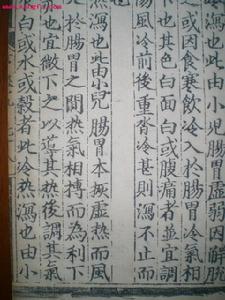 也此由小兒腸胃虚弱因解脫
或因食寒飲冷入於腸胃冷氣
也其色白面白或腹痛者並宜調
風冷前後重沓冷甚則瀉不止而
热瀉也此由小兒腸胃本挾虚热而風
於腸胃之間热氣相搏而為利下
也宜微下之以導其热後調其氣
白或水或穀者此冷热瀉也由小